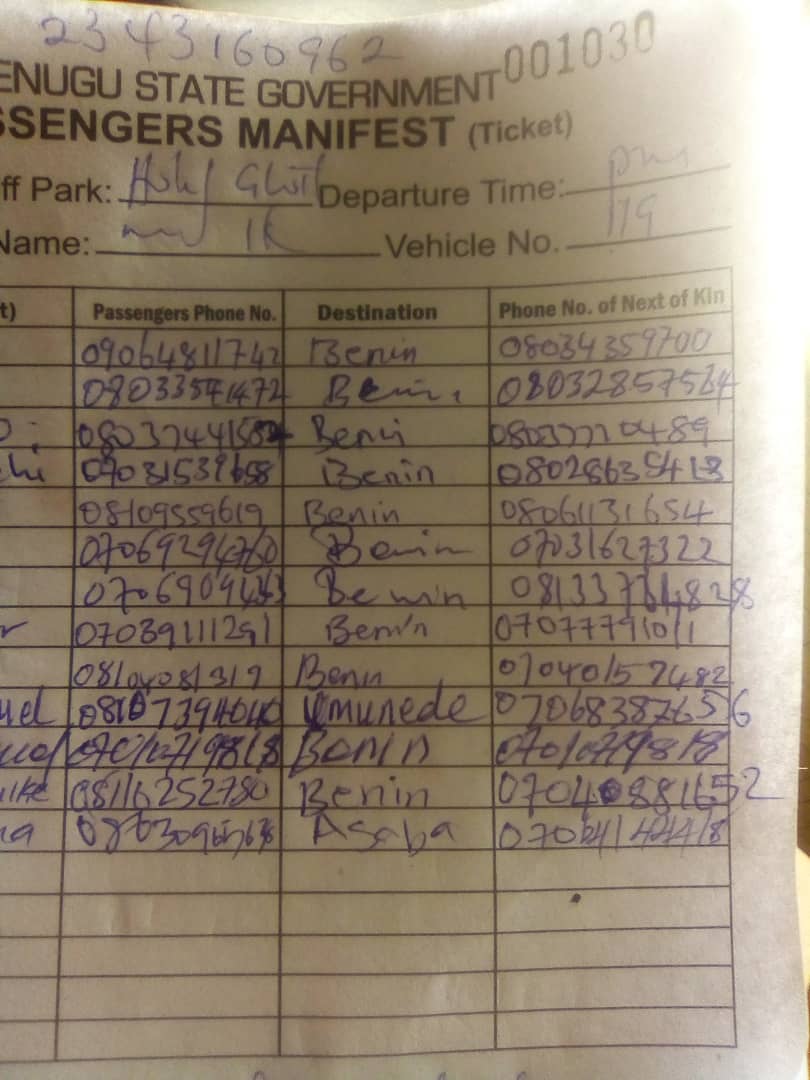 2343160962
ENUGU STATE GOVERNMENT 001030
SSENGERS MANIFEST (Ticket)
ff Park: Holy Ghost Departure Time: pm
Name: IK Vehicle No. 119
t) Passengers Phone No. Destination Phone No. of Next of Kin
09064811742 Benin 08034359700
Benin 08032857564
Benin
chi 07031539658 Benin
08109559619 Benin 08061131654
07069294760 Benin 07031627322
Benin
r 07039111291 Benin 07077791011
Benin 07040157482
uel 08107394040 Umunede 07068387656
Benin
uike 08116252780 Benin 07040881652
na Asaba